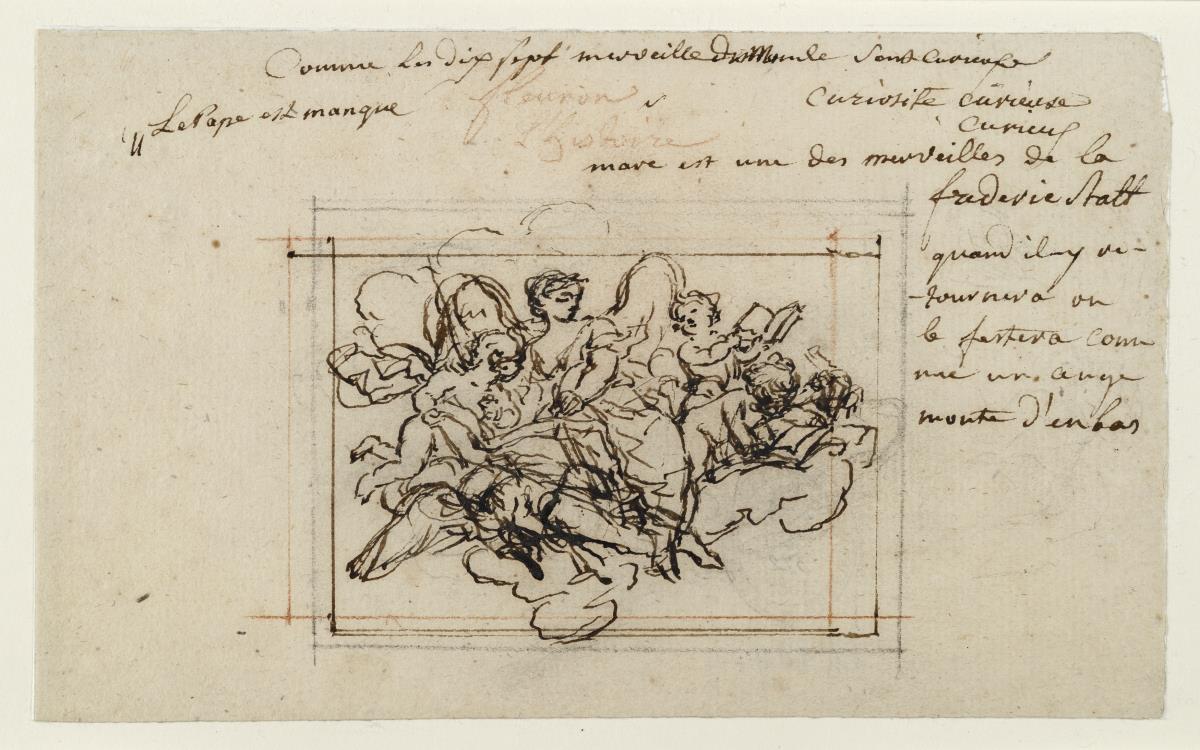 Comme les dix sept merveille du Monde sont curieuse
Le Pape est manque
fleuron
l'histoire
Curiosite curieuse
curieus
mare est une des merveilles de la
frederic statt
quand il y re-
tournera on
le festera com
me un ange
monte d'en bas